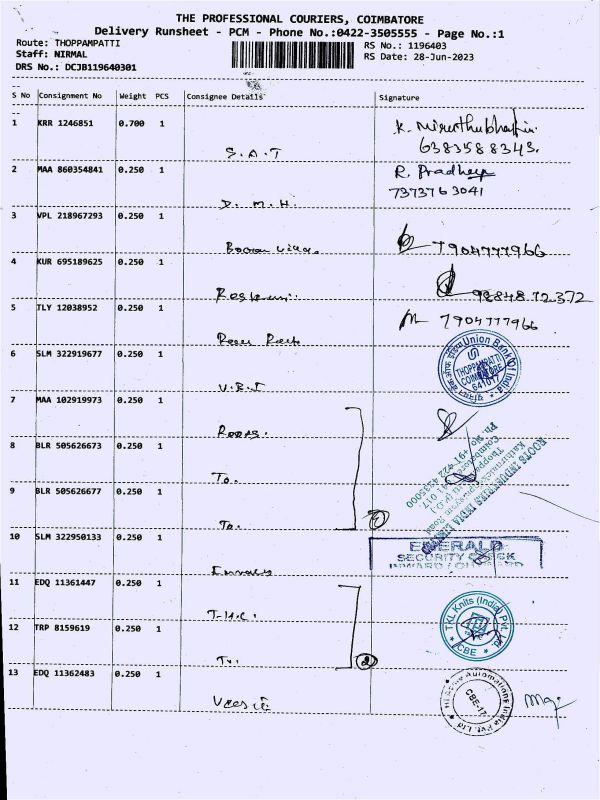 THE PROFESSIONAL COURIERS, COIMBATORE
Delivery Runsheet - PCM - Phone No.:0422-3505555 - Page No.:1
Route: THOPPAMPATTI RS No.: 1196403
Staff: NIRMAL RS Date: 28-Jun-2023
DRS No.: DCJB119640301
S No Consignment No Weight PCS Consignee Details Signature
1 KRR 1246851 0.700 1
S.A.T 6383588343.
2 MAA 860354841 0.250 1 R. Pradheep
D. M. H. 7373763041
3 VPL 218967293 0.250 1
7904777966
4 KUR 695189625 0.250 1
98848 72372
5 TLY 12038952 0.250 1
7904777966
6 SLM 322919677 0.250 1
U.B.I
Union Bank of India
THOPPAMPATTI
COIMBATORE
641017
7 MAA 102919973 0.250 1
Roots.
8 BLR 505626673 0.250 1
To.
9 BLR 505626677 0.250 1
To.
ROOTS INDUSTRIES INDIA LIMITED
Thoppampatti
Coimbatore
10 SLM 322950133 0.250 1
EMERALD
SECURITY CHECK
INWARD / OUTWARD
11 EDQ 11361447 0.250 1
12 TRP 8159619 0.250 1
To.
2
TKL Knits (India) Pvt. Ltd
CBE
13 EDQ 11362483 0.250 1
Automations India Pvt. Ltd
CBE-17